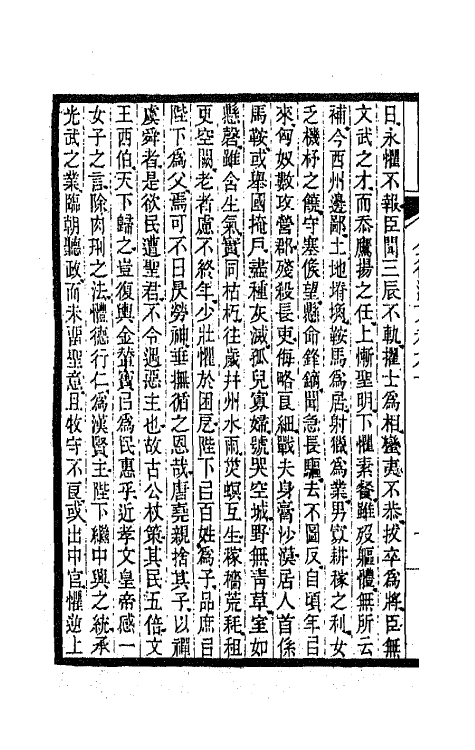 日永懼不報臣聞三辰不軌擢士為相蠻夷不恭拔卒為將臣無
文武之才而忝鷹揚之任上慚聖明下懼素餐雖歿軀體無所云
補今西州邊鄙土地塉埆鞍馬為居射獵為業男寡耕稼之利女
乏機杼之饒守塞候望懸命鋒鏑聞急長驅去不圖反自頃年㠯
來匈奴數攻營郡殘殺長吏侮略良細戰夫身膏沙漠居人首係
馬鞍或舉國掩戶盡種灰滅孤兒寡婦號哭空城野無青草室如
懸磬雖含生氣實同枯朽往歲并州水雨災螟互生稼穡荒秏租
更空闕老者慮不終年少壯懼於困厄陛下㠯百姓為子品庶㠯
陛下為父焉可不日昃勞神垂撫循之恩哉唐堯親捨其子以禪
虞舜者是欲民遭聖君不令遇惡主也故古公杖策其民五倍文
王西伯天下歸之豈復輿金輦寶㠯為民惠乎近孝文皇帝感一
女子之言除肉刑之法體德行仁為漢賢主陛下繼中興之統承
光武之業臨朝聽政而未畱聖意且牧守不良或出中官懼逆上